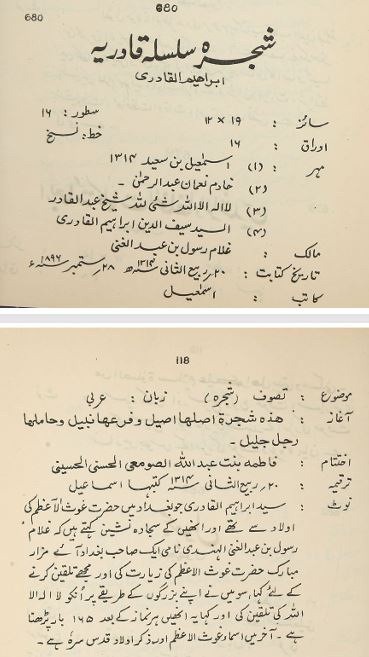 680
680
شجرہ سلسلہ قادریہ
ابراھیم القادری
سائز : ۱۹ × ۱۲ سطور : ۱۶
اوراق : ۱۶ خط : نسخ
مہر : (۱) اسمٰعیل بن سعید ۱۳۱۴
(۲) خادم نعمان عبد الرحمٰن ۔
(۳) لا الہ الا اللہ شئی للہ شیخ عبد القادر
(۴) السید سیف الدین ابراہیم القادری
مالک : غلام رسول بن عبد الغنی
تاریخ کتابت : ۲۰؍ ربیع الثانی ۱۳۱۴ھ ۲۸؍ ستمبر ۱۸۹۶ء
کاتب : اسمٰعیل
118
موضوع : تصوف (شجرہ) زبان : عربی
آغاز : ھذہ شجرۃ اصلھا اصیل و فرعھا نبیل و حاملھا
رجل جلیل ۔
اختتام : فاطمہ بنت عبد اللہ الصومعی الحسنی الحسینی
ترقیمہ : ۲۰؍ ربیع الثانی ۱۳۱۴ سنۃ کتبھا اسماعیل
نوٹ : سید ابراہیم القادری جو بغداد میں حضرت غوث الاعظم کی
اولاد سے تھے اور انھیں کے سجادہ نشین کہتے ہیں کہ غلام
رسول بن عبد الغنی الہندی نامی ایک صاحب بغداد آئے مزار
مبارک حضرت غوث الاعظم کی زیارت کی اور مجھے تلقین کرنے
کے لئے کہا، سو میں نے اپنے بزرگوں کے طریقے پر انکو لا الہ الا
اللہ کی تلقین کی اور کہا یہ انھیں ہر نماز کے بعد ۱۶۵ بار پڑھنا
ہے ۔ آخر میں اسماء غوث الاعظم اور ذکر اولاد قدس سرہ ہے ۔